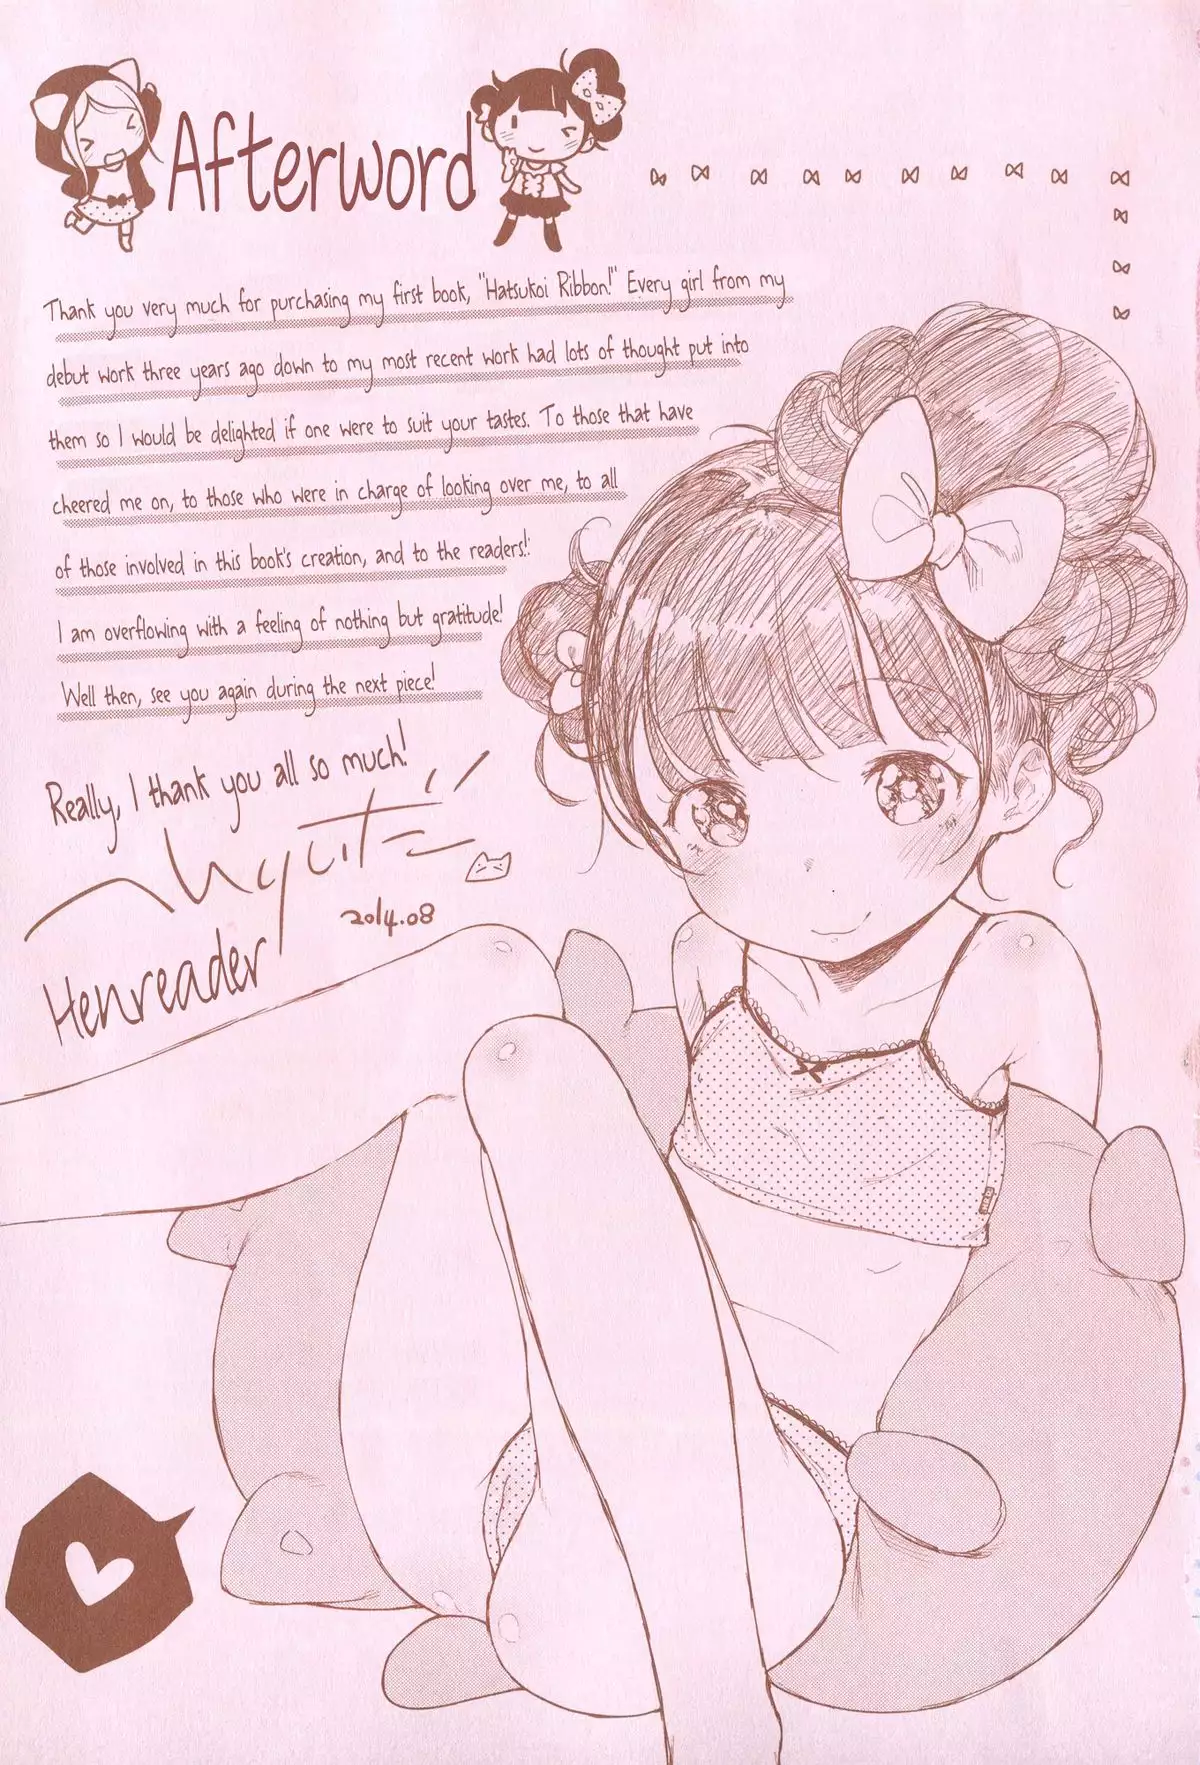 Afterword
Thank you very much for purchasing my first book, "Hatsukoi Ribbon!" Every girl from my
debut work three years ago down to my most recent work had lots of thought put into
them so I would be delighted if one were to suit your tastes. To those that have
cheered me on, to those who were in charge of looking over me, to all
of those involved in this book's creation, and to the readers!
I am overflowing with a feeling of nothing but gratitude!
Well then, see you again during the next piece!
Really, I thank you all so much!
へんりいだー
2014.08
Henreader